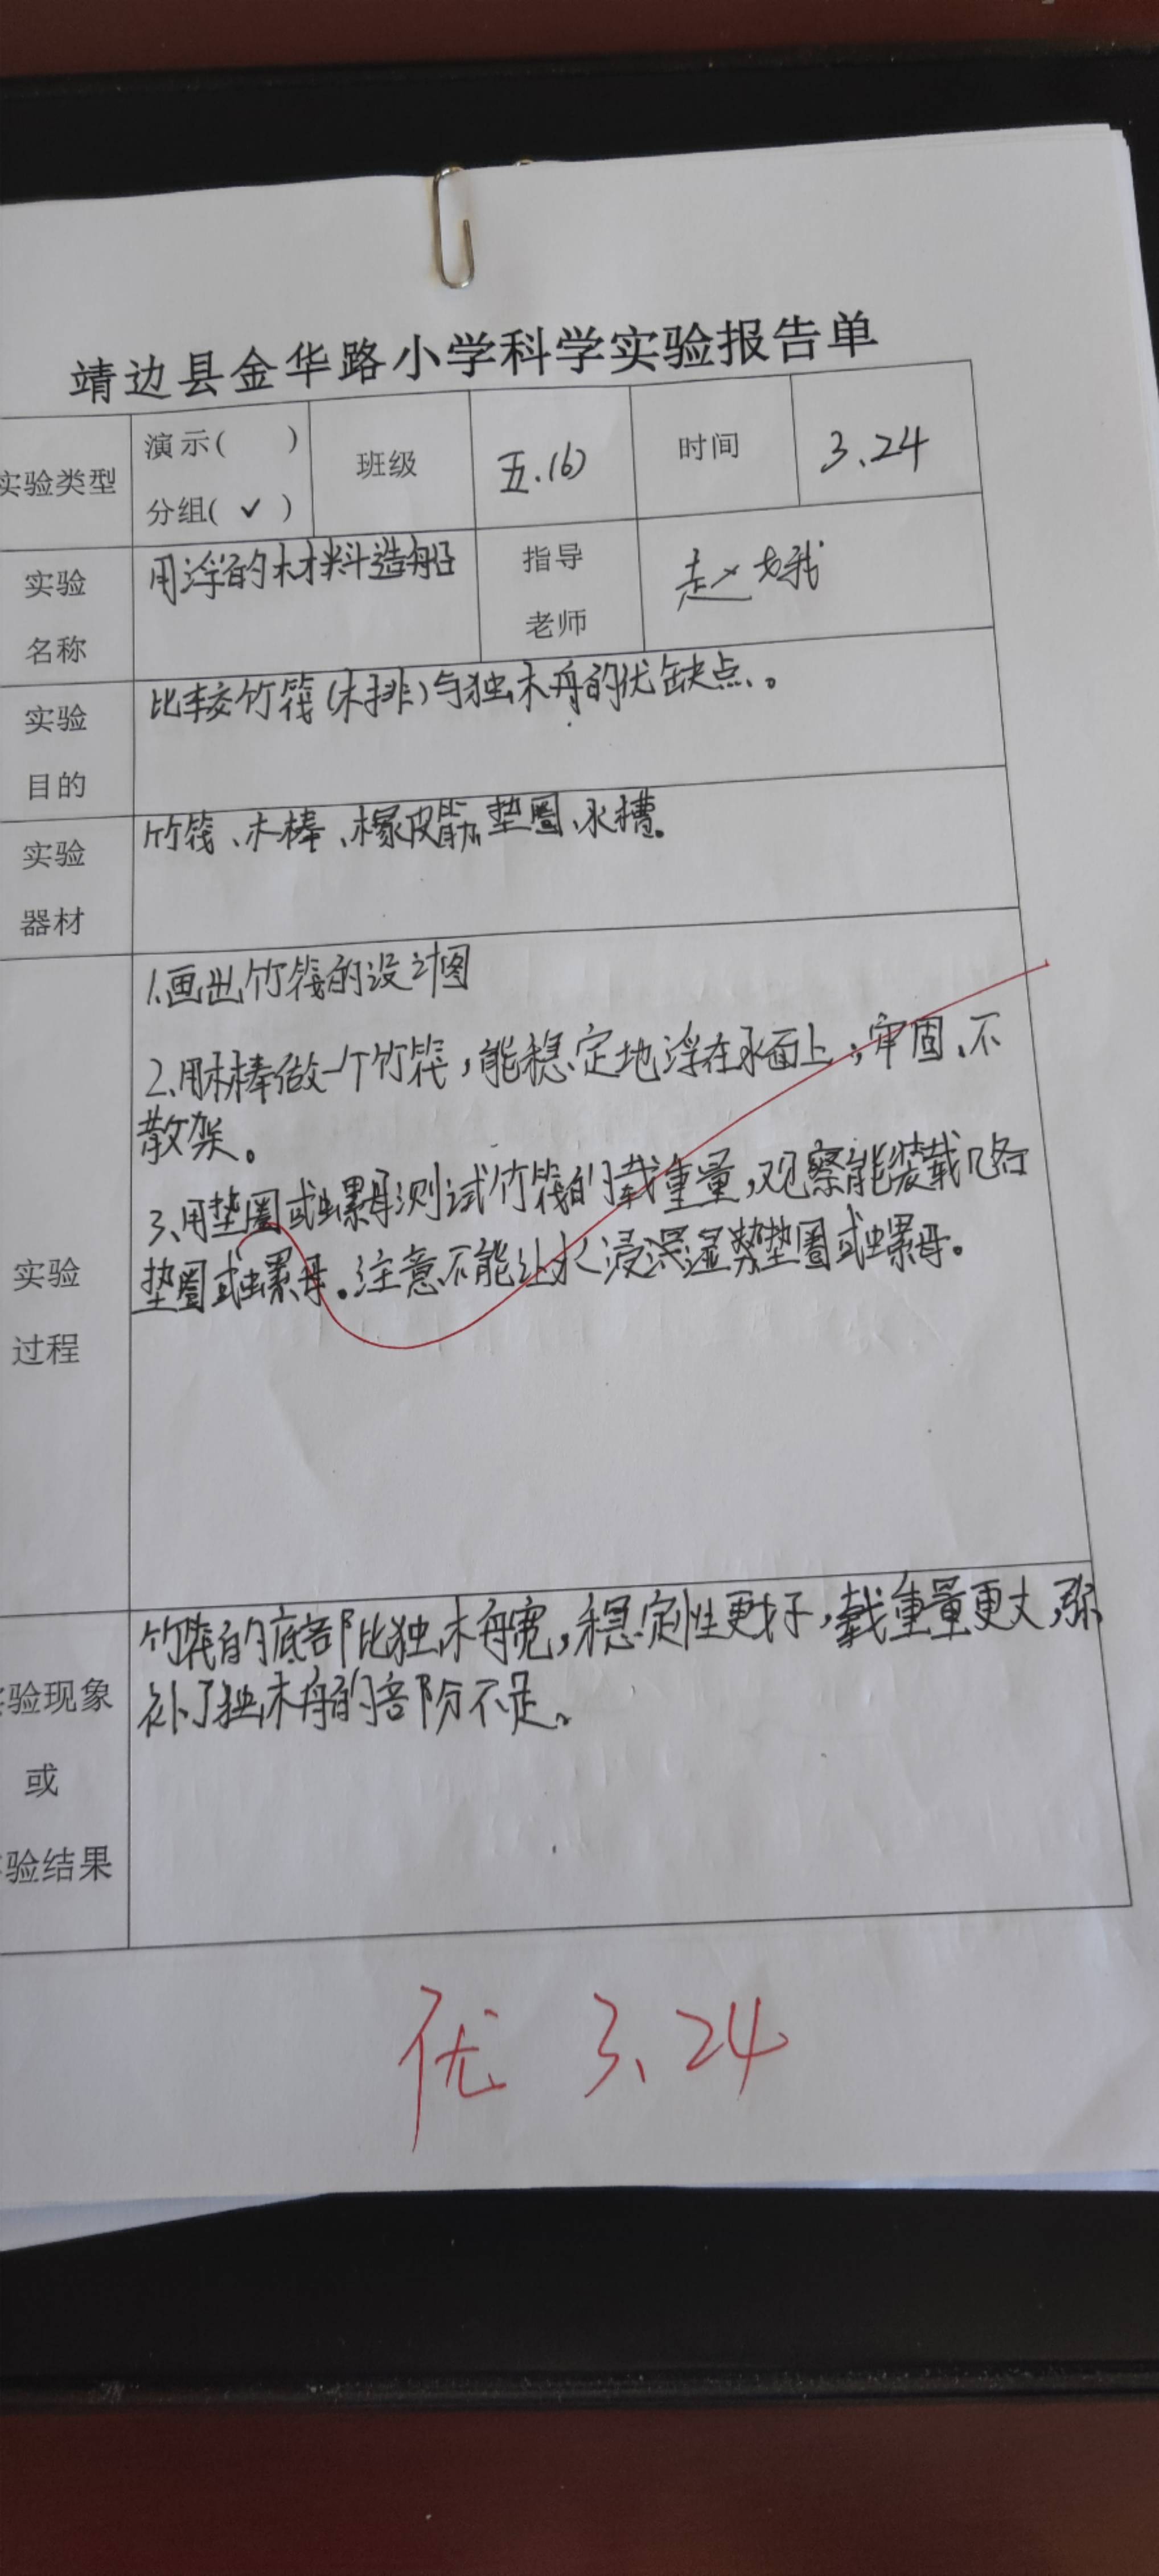 靖边县金华路小学科学实验报告单
实验类型 演示( ) 分组( ✓ ) 班级 五.(6) 时间 3.24
实验名称 用浮的木材料造船 指导老师 赵
实验目的 比较竹筏(木排)与独木舟的优缺点。
实验器材 竹筏、木棒、橡皮筋、垫圈、水槽。
实验过程
1.画出竹筏的设计图
2.用木棒做一个竹筏,能稳定地浮在水面上;牢固、不
散架。
3.用垫圈或螺母测试竹筏的载重量,观察能装载几个
垫圈或螺母。注意不能让水浸湿垫圈或螺母。
验现象
或
验结果
竹筏的底部比独木舟宽,稳定性更好,载重量更大,弥
补了独木舟的部分不足。
优 3.24